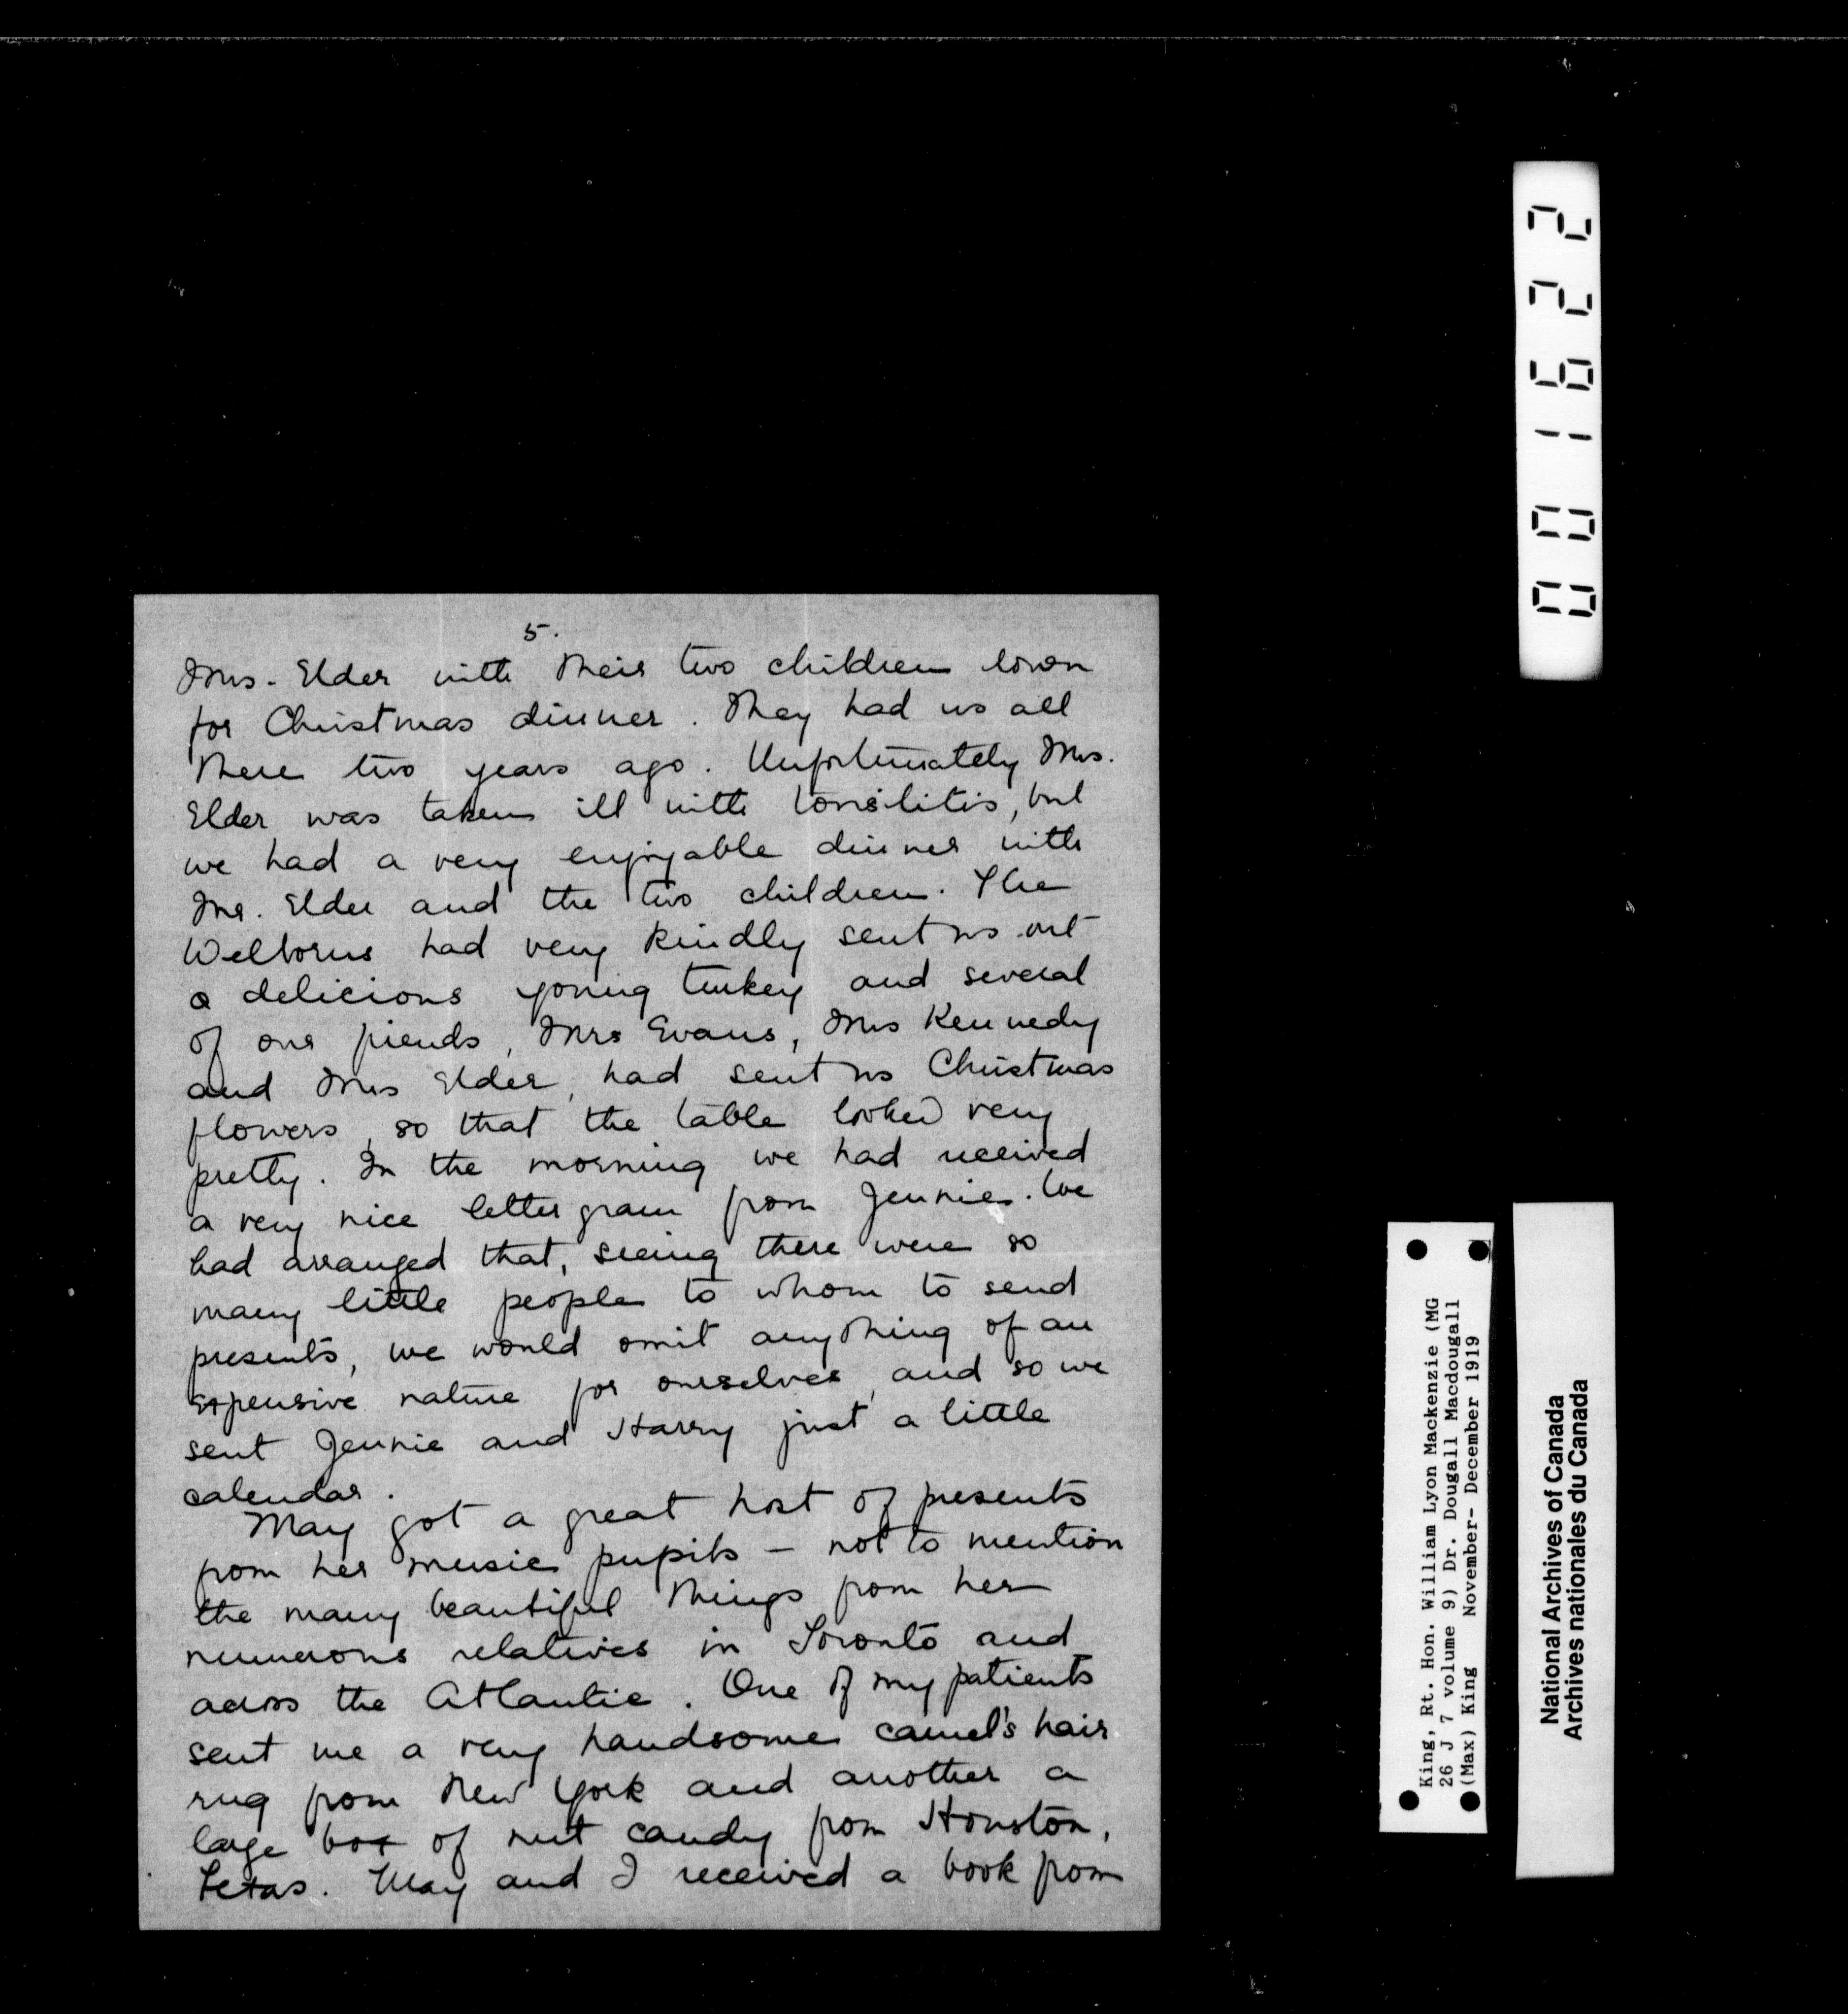 5.
Mrs. Elder with their two children down
for Christmas dinner. They had us all
there two years ago. Unfortunately Mrs.
Elder was taken ill with tonsilitis, but
we had a very enjoyable dinner with
Mr. Elder and the two children. The
Welborns had very kindly sent us out
a delicious young turkey and several
of our friends, Mrs Evans, Mrs Kennedy
and Mrs Elder, had sent us Christmas
flowers, so that the table looked very
pretty. In the morning we had received
a very nice lettergram from Jennie. We
had arranged that, seeing there were so
many little people to whom to send
presents, we would omit anything of an
expensive nature for ourselves, and so we
sent Jennie and Harry just a little
calendar.
May got a great host of presents
from her music pupils – not to mention
the many beautiful things from her
numerous relatives in Toronto and
across the Atlantic. One of my patients
sent me a very handsome camel's hair
rug from New York and another a
large box of nut candy from Houston,
Texas. May and I received a book from
001622
King, Rt. Hon. William Lyon Mackenzie (MG
26 J 7 volume 9) Dr. Dougall Macdougall
(Max) King November- December 1919
National Archives of Canada
Archives nationales du Canada